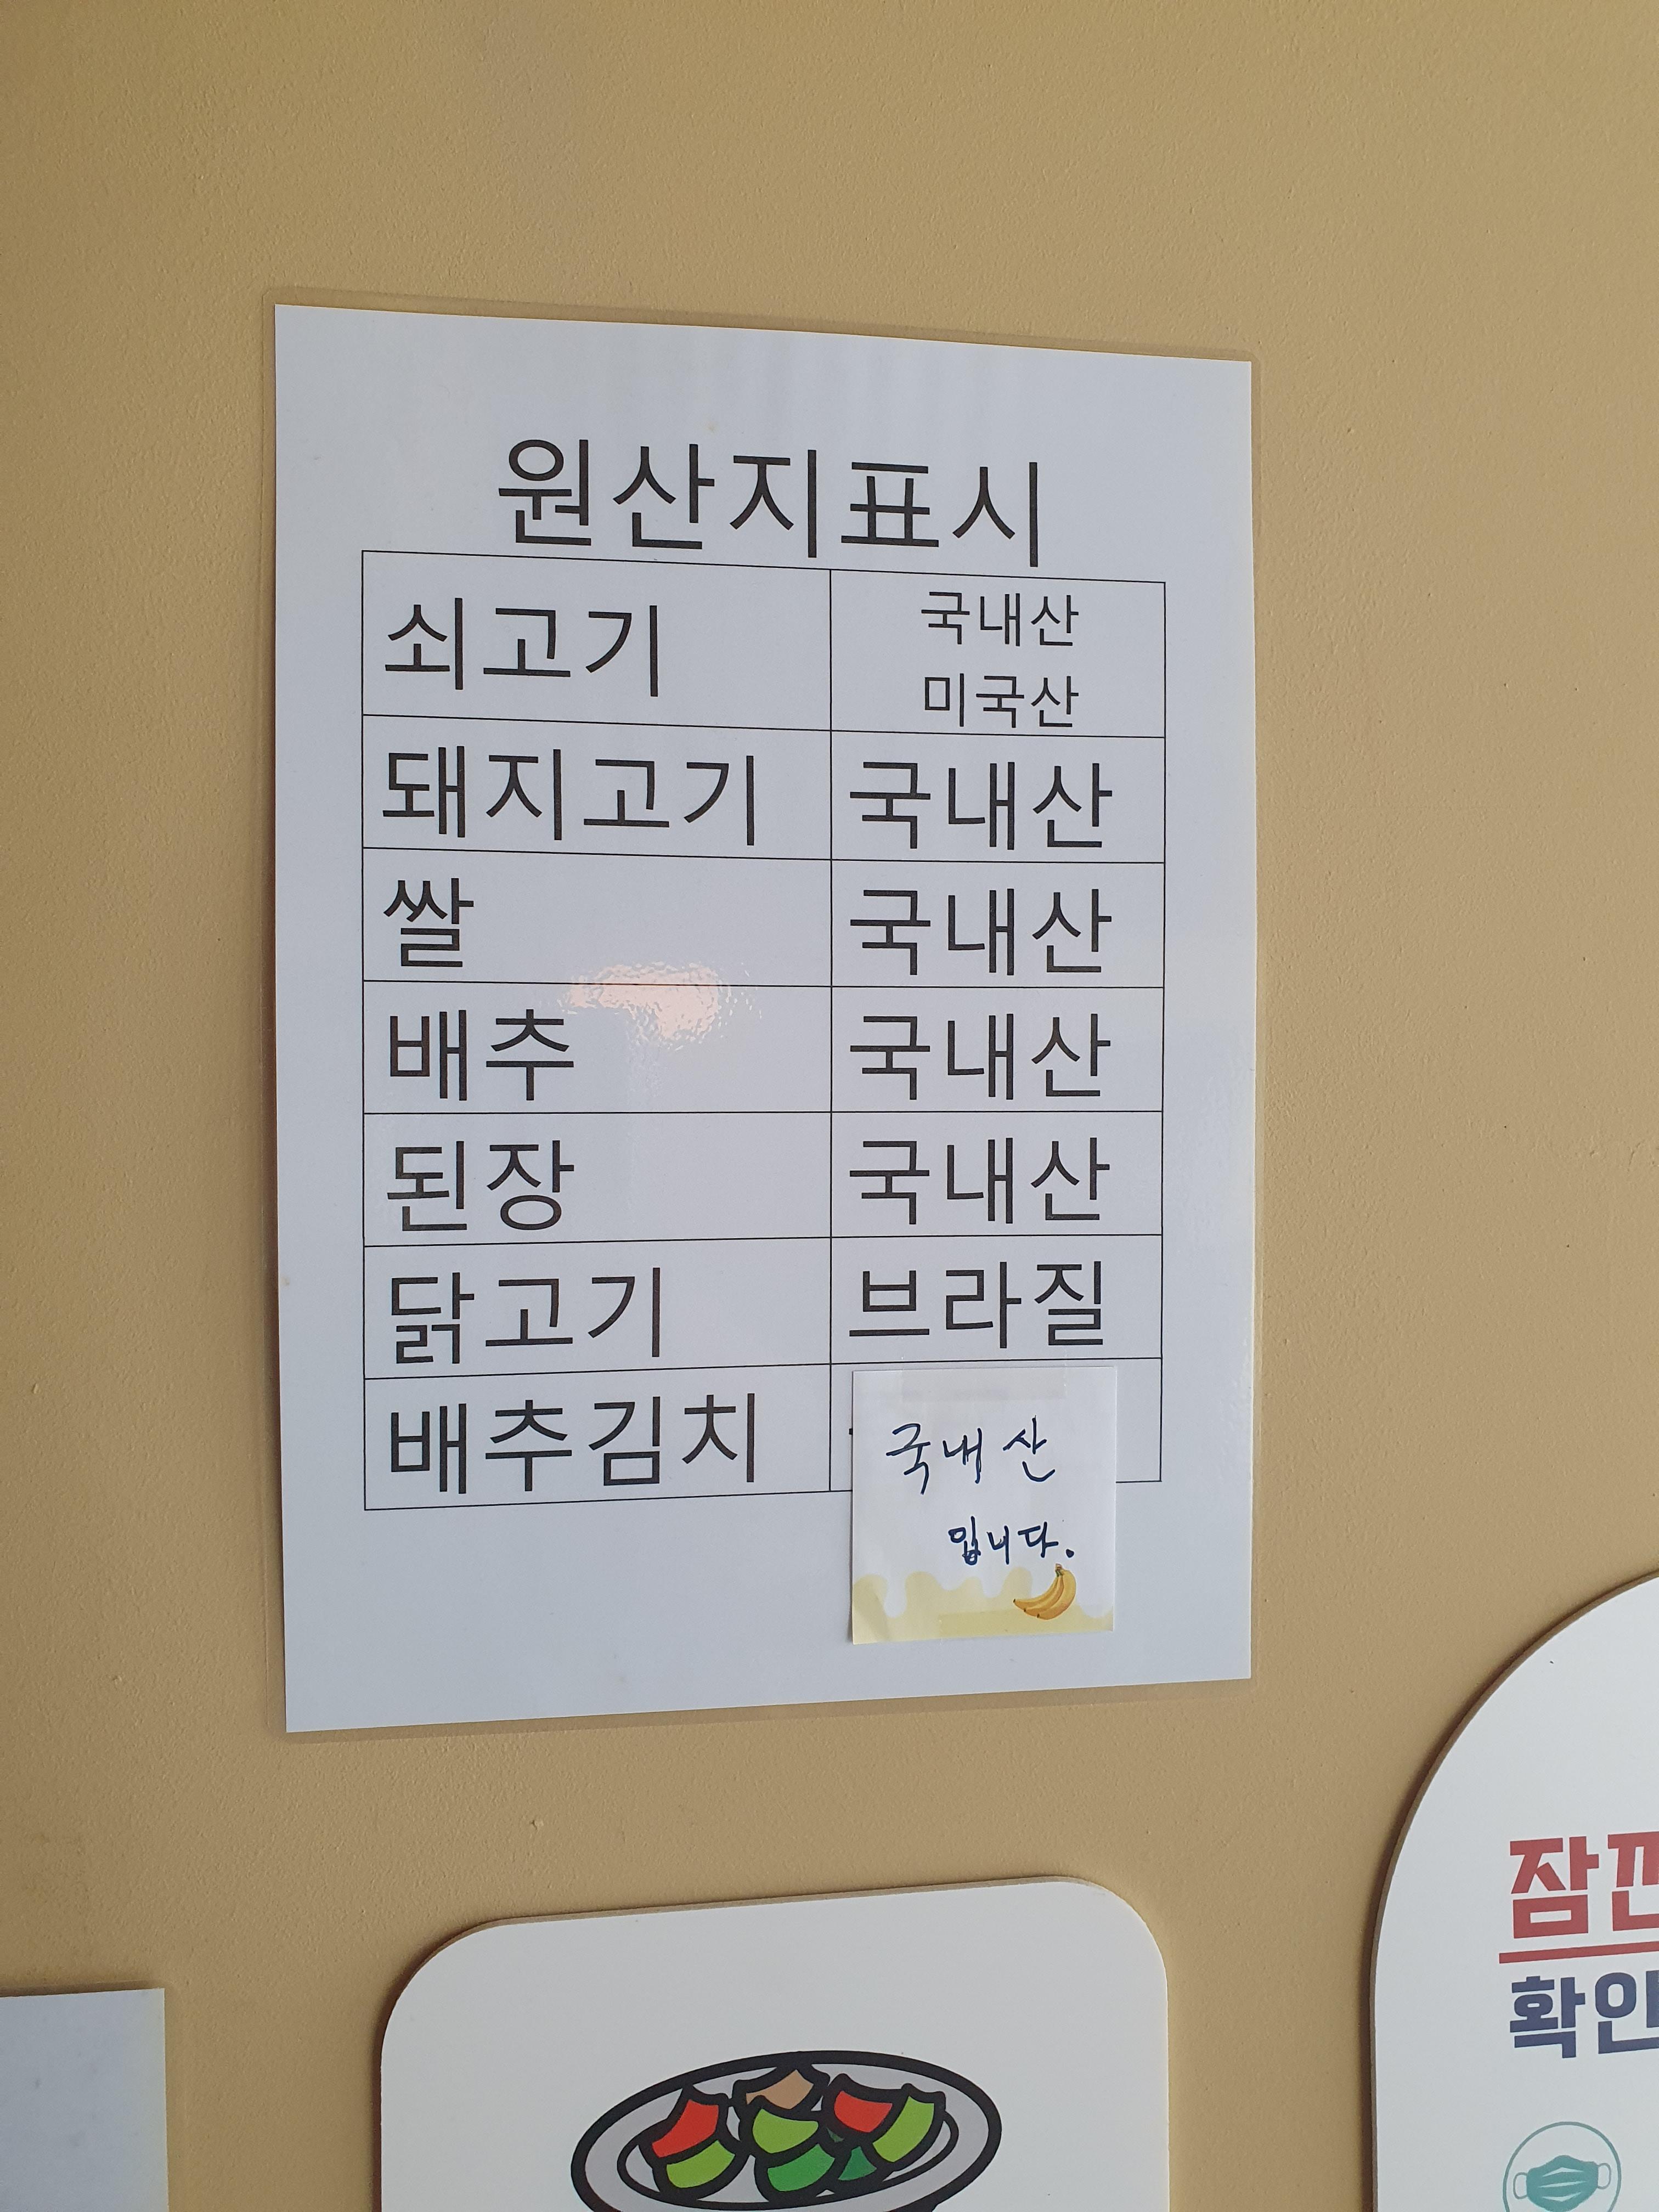 원산지표시
쇠고기
국내산
미국산
돼지고기 국내산
쌀 국내산
배추 국내산
된장 국내산
닭고기 브라질
배추김치
국내산
입니다.
확인